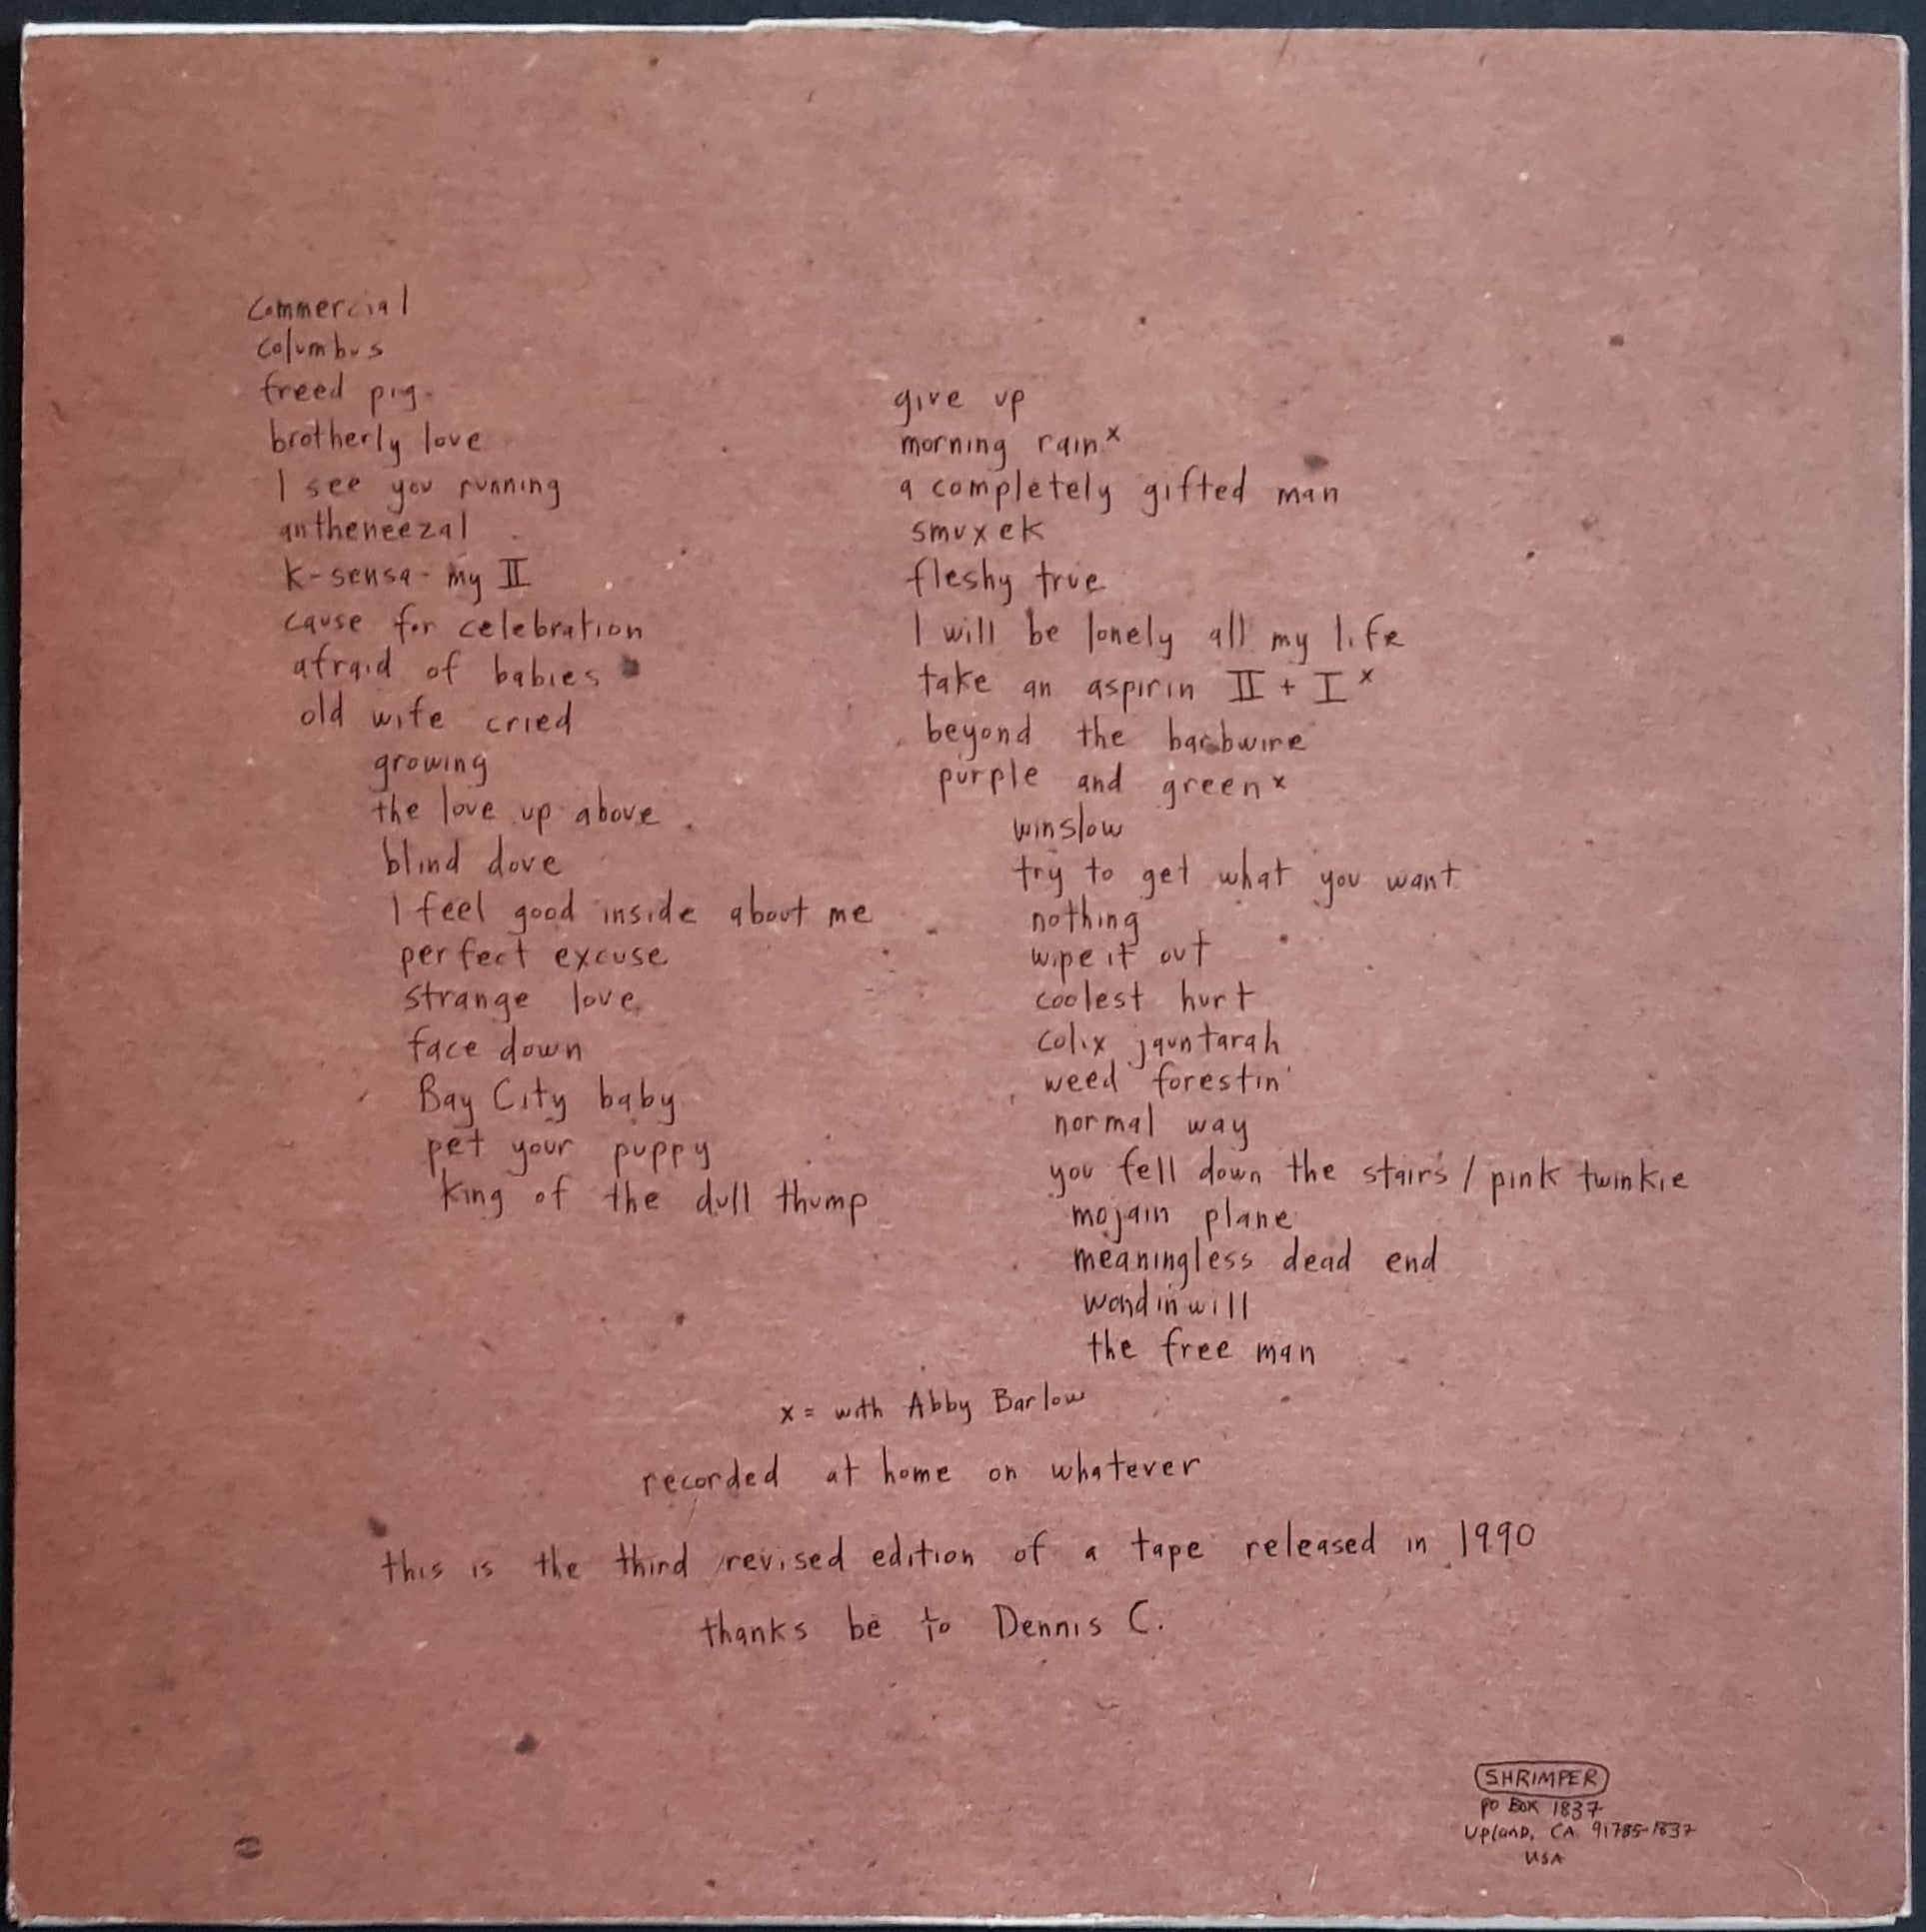 Commercial
columbus
freed pig
brotherly love
I see you running
antheneezal
K-sensa-my II
cause for celebration
afraid of babies
old wife cried
growing
the love up above
blind dove
I feel good inside about me
perfect excuse
strange love
face down
Bay City baby
pet your puppy
king of the dull thump
give up
morning rain x
a completely gifted man
smuxek
fleshy true
I will be lonely all my life
take an aspirin II + I x
beyond the barbwire
purple and green x
winslow
try to get what you want
nothing
wipe it out
coolest hurt
colix jauntarah
weed forestin'
normal way
you fell down the stairs / pink twinkie
mojain plane
meaningless dead end
wondinwill
the free man
x = with Abby Barlow
recorded at home on whatever
this is the third revised edition of a tape released in 1990
thanks be to Dennis C.
SHRIMPER
PO BOX 1837
Upland, CA 91785-1837
USA